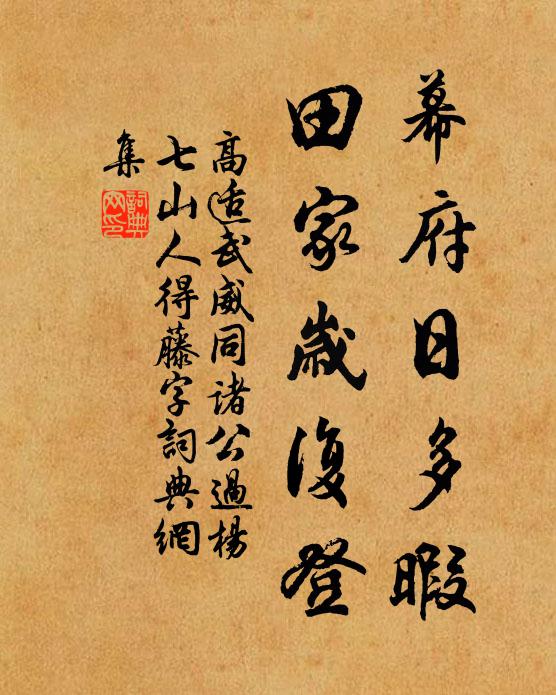 幕府日多暇
田家歲復登
高适武威同諸公過楊
七山人得藤字詞典網
集
詞典網印